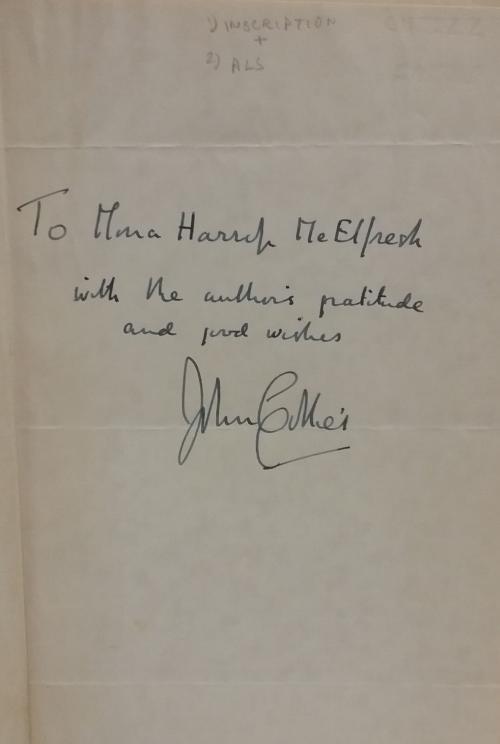 1) INSCRIPTION
+
2) ALS
To Mona Harrop McElfresh
with the author's gratitude
and good wishes
John